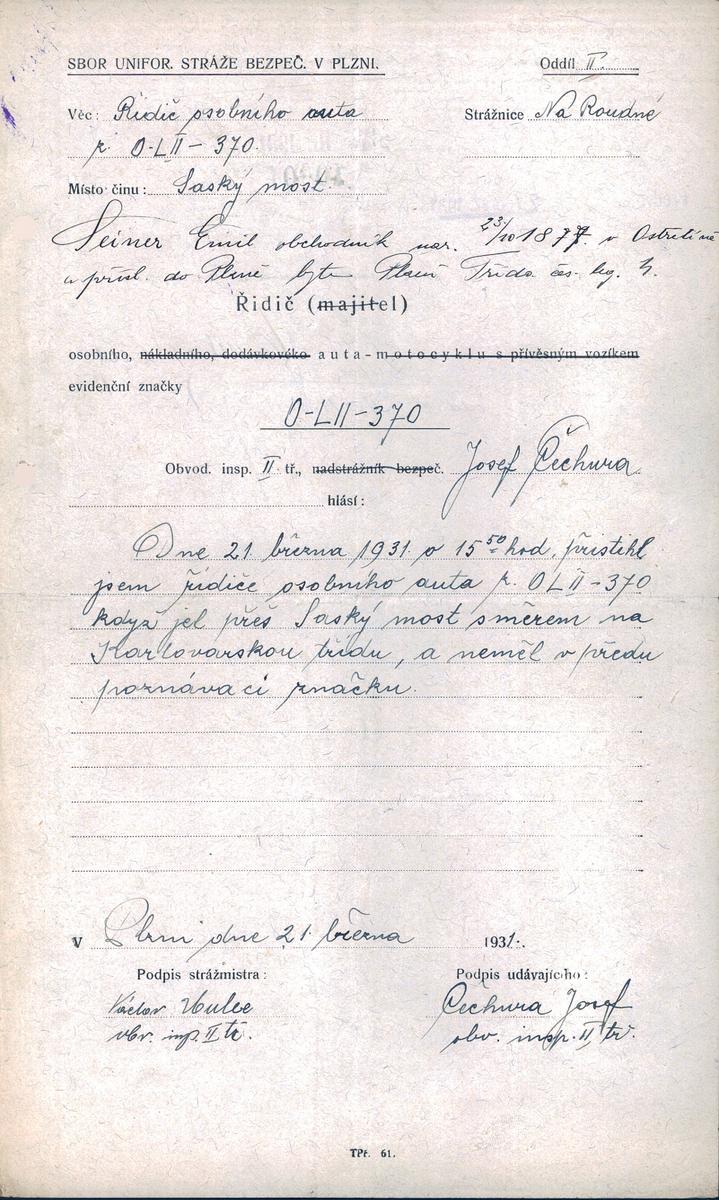 SBOR UNIFOR. STRÁŽE BEZPEČ. V PLZNI.
Oddíl II.
Věc: Řidič osobního auta
Strážnice Na Roudné
z. O-LII-370.
Místo činu: Saský most.
Seiner Emil obchodník nar. 23/10 1877 v
a přísl. do Plzně bytem Plzeň Třída čs. leg. 4.
Řidič (majitel)
osobního, nákladního, dodávkového auta-motocyklu s přívěsným vozíkem
evidenční značky
O-LII-370
Obvod. insp. II tř., nadstrážník bezpeč. Josef Čechura
hlásí:
Dne 21. března 1931. o 15 50 hod. přistihl
jsem řidiče osobního auta z. O LII-370
když jel přes Saský most směrem na
Karlovarskou třídu, a neměl v předu
poznávací značku.
V Plzni dne 21. března 1931.
Podpis strážmistra:
Podpis udávajícího:
Václav
Čechura Josef
obv. insp. II tř.
obv. insp. II tř.
TPř. 61.